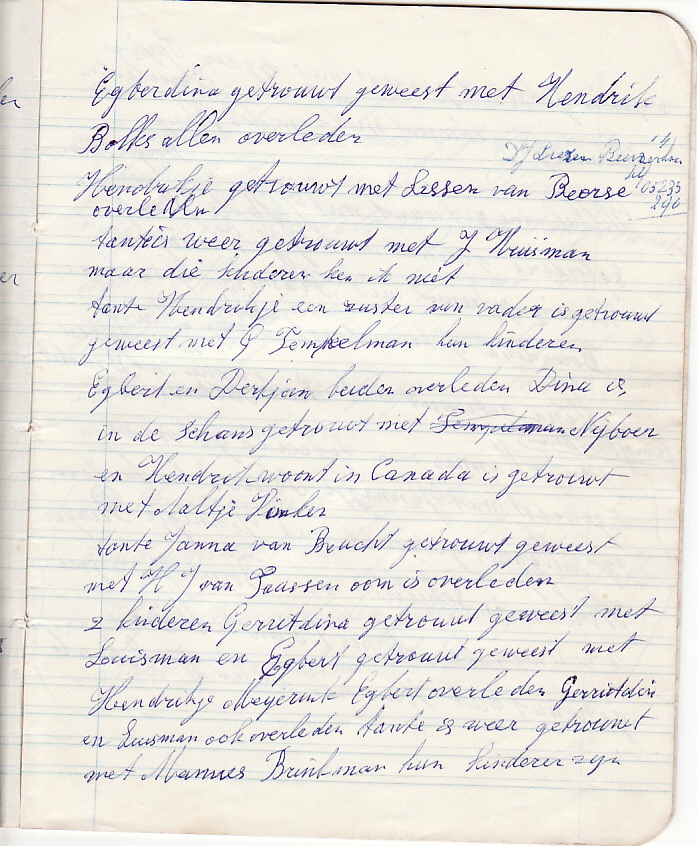 Egberdina getrouwt geweest met Hendrik
Bolks allen overleden
Hendrikje getrouwt met Lussen van Beorse
05235
290
overleden
tante is weer getrouwt met J Huisman
maar die kinderen ken ik niet
tante Hendrikje een zuster van vader is getrouwt
geweest met G Tempelman hun kinderen
Egbert en Dertjan beiden overleden Dina is
in de Schans getrouwt met Tempelman Nijboer
en Hendrik woont in Canada is getrouwt
met Aaltje Vinker
tante Janna van Brucht getrouwt geweest
met H J van Faassen oom is overleden
2 kinderen Gerritdina getrouwt geweest met
Louisman en Egbert getrouwt geweest met
Hendrikje Meyerink Egbert overleden Gerritdin
en Luisman ook overleden tante is weer getrouwt
met Mannes Brinkman hun kinderen zijn